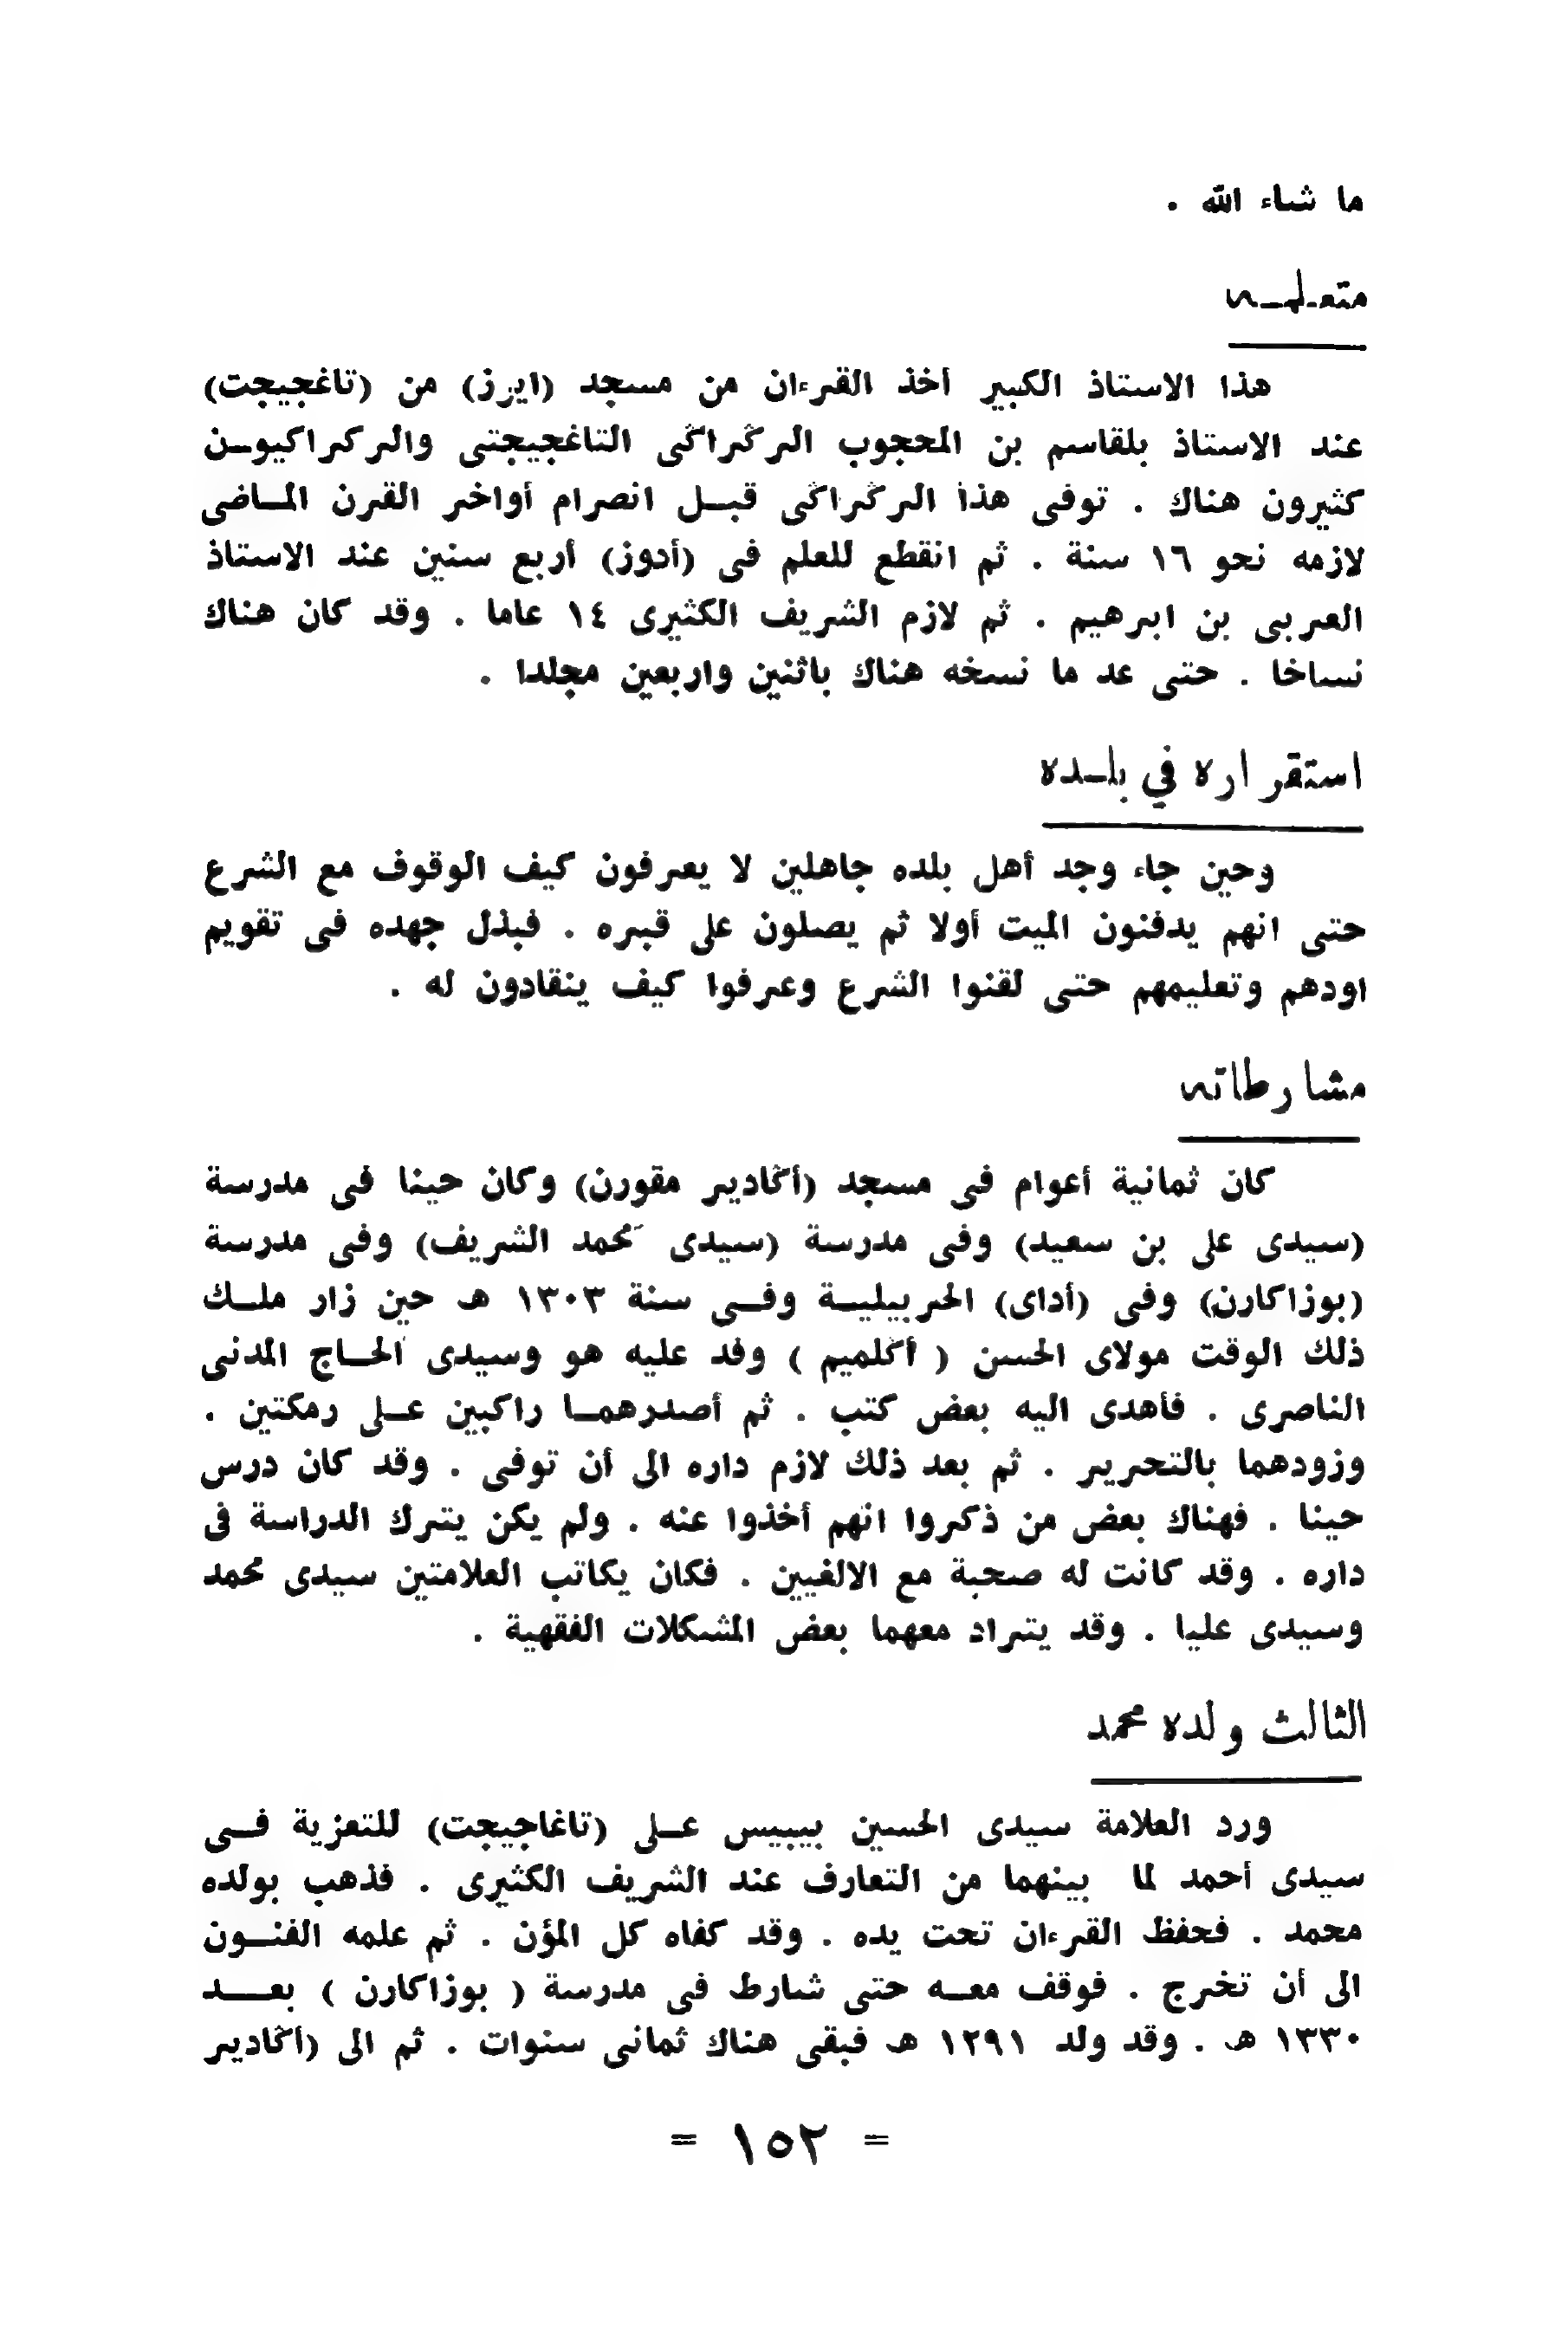 ما شاء الله .
متعلمه
هذا الاستاذ الكبير أخذ القرءان من مسجد (ايرز) من (تاغجيجت)
عند الاستاذ بلقاسم بن المحجوب الرݣراݣى التاغجيجتى والركراكيون
كثيرون هناك . توفى هذا الرݣراݣى قبل انصرام أواخر القرن الماضى
لازمه نحو ١٦ سنة . ثم انقطع للعلم فى (أدوز) أربع سنين عند الاستاذ
العربى بن ابرهيم . ثم لازم الشريف الكثيرى ١٤ عاما . وقد كان هناك
نساخا . حتى عد ما نسخه هناك باثنين واربعين مجلدا .
استقراره في بلده
وحين جاء وجد أهل بلده جاهلين لا يعرفون كيف الوقوف مع الشرع
حتى انهم يدفنون الميت أولا ثم يصلون على قبره . فبذل جهده فى تقويم
اودهم وتعليمهم حتى لقنوا الشرع وعرفوا كيف ينقادون له .
مشارطاته
كان ثمانية أعوام فى مسجد (أݣادير مقورن) وكان حينا فى مدرسة
(سيدى على بن سعيد) وفى مدرسة (سيدى مَحمد الشريف) وفى مدرسة
(بوزاكارن) وفى (أداى) الحربيلية وفى سنة ١٣٠٣ هـ حين زار ملك
ذلك الوقت مولاى الحسن ( أݣلميم ) وفد عليه هو وسيدى الحاج المدنى
الناصرى . فأهدى اليه بعض كتب . ثم أصدرهما راكبين على رمكتين .
وزودهما بالتحرير . ثم بعد ذلك لازم داره الى أن توفى . وقد كان درس
حينا . فهناك بعض من ذكروا انهم أخذوا عنه . ولم يكن يترك الدراسة فى
داره . وقد كانت له صحبة مع الالغيين . فكان يكاتب العلامتين سيدى محمد
وسيدى عليا . وقد يتراد معهما بعض المشكلات الفقهية .
الثالث ولده محمد
ورد العلامة سيدى الحسين بيبيس على (تاغاجيجت) للتعزية فى
سيدى أحمد لما بينهما من التعارف عند الشريف الكثيرى . فذهب بولده
محمد . فحفظ القرءان تحت يده . وقد كفاه كل المؤن . ثم علمه الفنون
الى أن تخرج . فوقف معه حتى شارط فى مدرسة ( بوزاكارن ) بعد
١٣٣٠ هـ . وقد ولد ١٢٩١ هـ فبقى هناك ثمانى سنوات . ثم الى (أݣادير
= ١٥٢ =